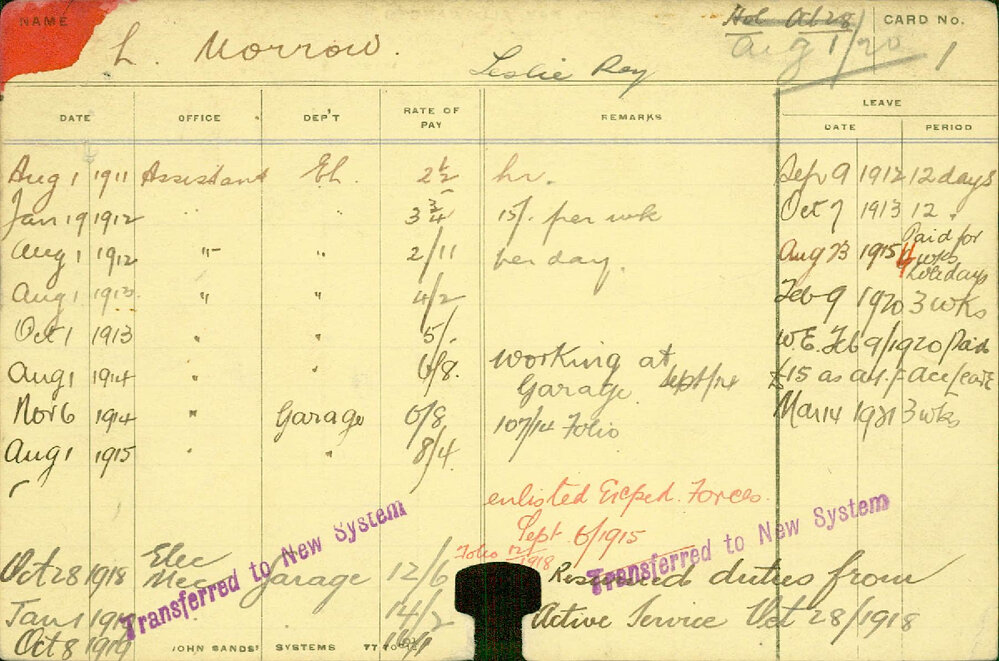 NAME L. Morrow. Hol Oct 28 CARD No.
Leslie Ray Aug 1/20 1
DATE OFFICE DEP'T RATE OF PAY REMARKS LEAVE
DATE PERIOD
Aug 1 1911 Assistant El. 2½ hr. Sep 9 1912 12 days
Jan 19 1912 " " 3¾ 15/. per wk Oct 7 1913 12 "
Aug 1 1912 " " 2/11 per day. Aug 23 1915 4 Paid for wks holidays
Aug 1 1913 " " 4/2 Feb 9 1920 3 wks
Oct 1 1913 " " 5/. W.E. Feb 9/1920 Paid
Aug 1 1914 " " 6/8. Working at Garage Sept/14 £15 as
Nov 6 1914 " Garage 6/8 107/14 Folio Mar 14 1921 3 wks
Aug 1 1915 " 8/4.
enlisted Exped. Forces.
Sept 6/1915
Folio 1918
Oct 28 1918 Elec Mec Garage 12/6 Resumed duties from
Jan 1 14/2 Active Service Oct 28/1918
Oct 8 1919
Transferred to New System
Transferred to New System
JOHN SANDS' SYSTEMS